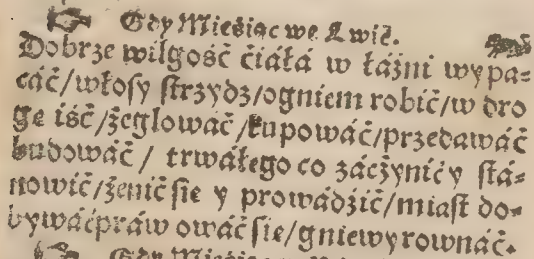 Gdy Mieśiąc we Lwie.
Dobrze wilgość ćiáłá w łáźni wypa-
cáć/włosy strzydz/ogniem robić/w dro
gę iść/żeglowáć/kupowáć/przedawáć
budowáć/ trwáłego co záczynić y stá-
nowić/żenić sie y prowádźić/miast do-
bywáć práw owáć sie/gniewy rownáć.
Gdy Mieśiąc